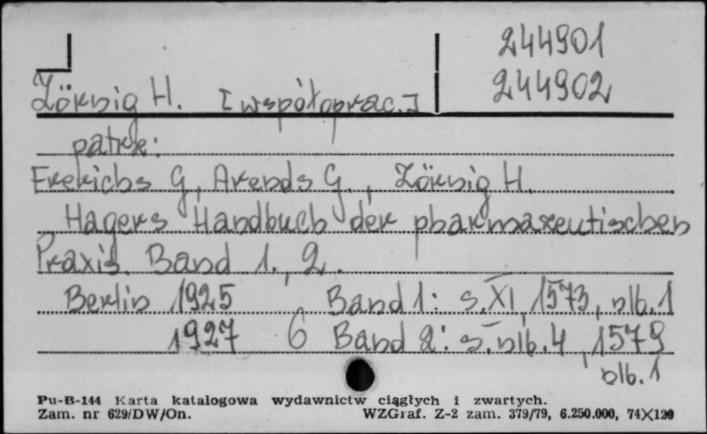 244901
244902
Zörnig H. [współoprac.]
patrz:
Frerichs G., Arends G., Zörnig H.
Hagers Handbuch der pharmazeutischen
Praxis. Band 1., 2.
Berlin 1925 Band 1: s. XI, 1573, nlb. 1
1927 6 Band 2: s. nlb. 4, 1579
nlb. 1
Pu-B-144 Karta katalogowa wydawnictw ciągłych i zwartych.
Zam. nr 629/DW/On. WZGraf. Z-2 zam. 379/79, 6.250.000, 74X120